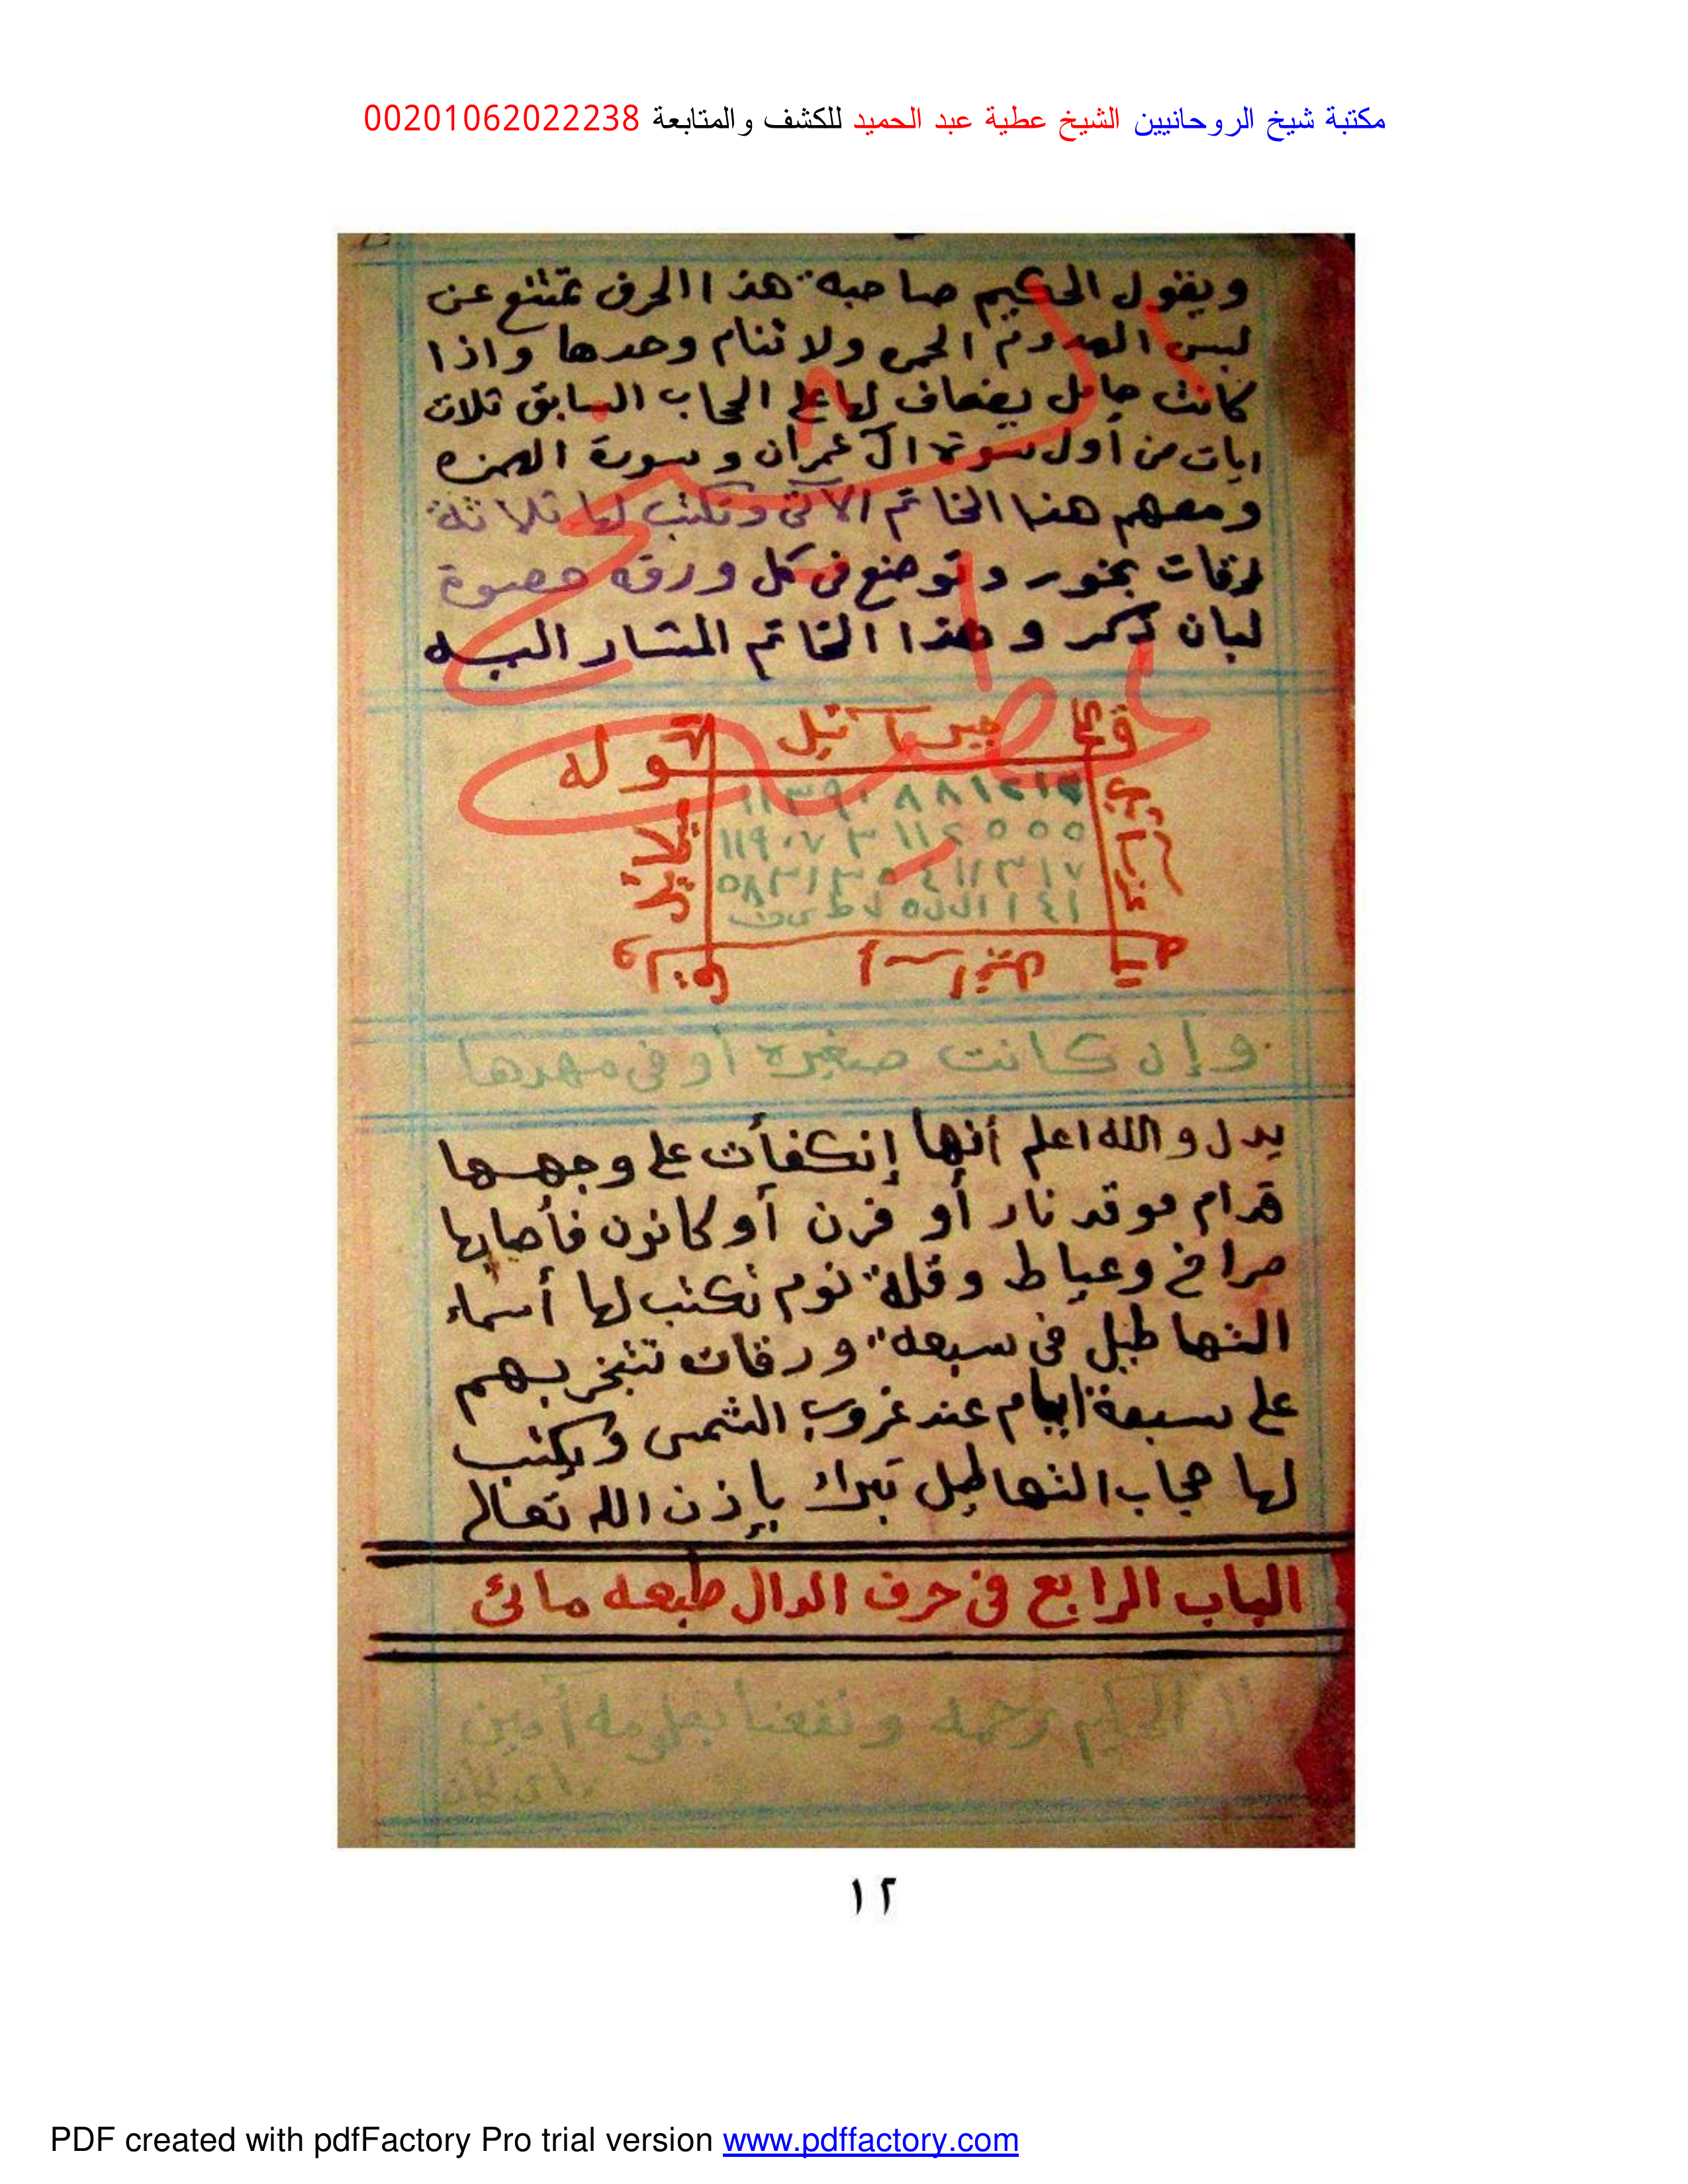 مكتبة شيخ الروحانيين الشيخ عطية عبد الحميد للكشف والمتابعة 00201062022238
ويقول الحكيم صاحبة هذا الحرف تمتنع عن
لبس الهدوم الحمر ولا تنام وحدها واذا
كانت حامل يضاف لها على الحجاب السابق ثلاث
ايات من أول سورة آل عمران وسورة الهمزه
ومعهم هذا الخاتم الآتى وتكتب لها ثلاثة
ورقات بخور وتوضع فى كل ورقه حصوة
لبان ذكر وهذا الخاتم المشار اليه
جبرائيل
قوله
ميكائيل
عزرائيل
١١٩٠٧ ٣ ١١٤ ٥ ٥ ٥
إسرافيل
وإن كانت صغيره أو فى مهدها
يدل والله اعلم أنها إنكفأت على وجهها
قدام موقد نار أو فرن أو كانون فأصابها
صراخ وعياط وقلة نوم تكتب لها أسماء
التهاطيل فى سبعة ورقات تتبخر بهم
على سبعة أيام عند غروب الشمس ويكتب
لها حجاب التهاطيل تبرأ بإذن الله تعالى
الباب الرابع فى حرف الدال طبعه مائى
الحكيم رحمه ونفعنا بعلومه أمين
١٢
PDF created with pdfFactory Pro trial version www.pdffactory.com